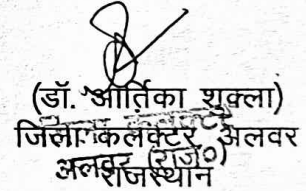 (डॉ. आर्तिका शुक्ला)
जिला कलेक्टर अलवर
अलवर (राज०)
राजस्थान